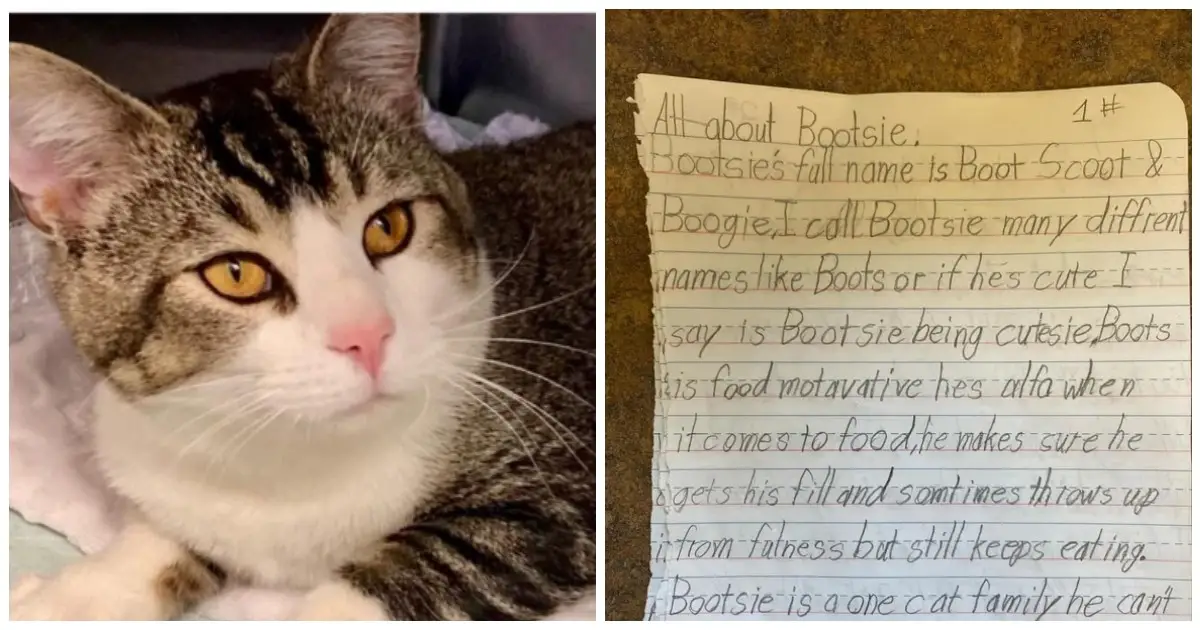 1#
All about Bootsie.
Bootsie's full name is Boot Scoot &
Boogie, I call Bootsie many diffrent
names like Boots or if he's cute I
say is Bootsie being cutesie, Boots
is food motavative hes alfa when
it comes to food, he makes sure he
gets his fill and somtimes throws up
from fulness but still keeps eating.
Bootsie is a one cat family he can't